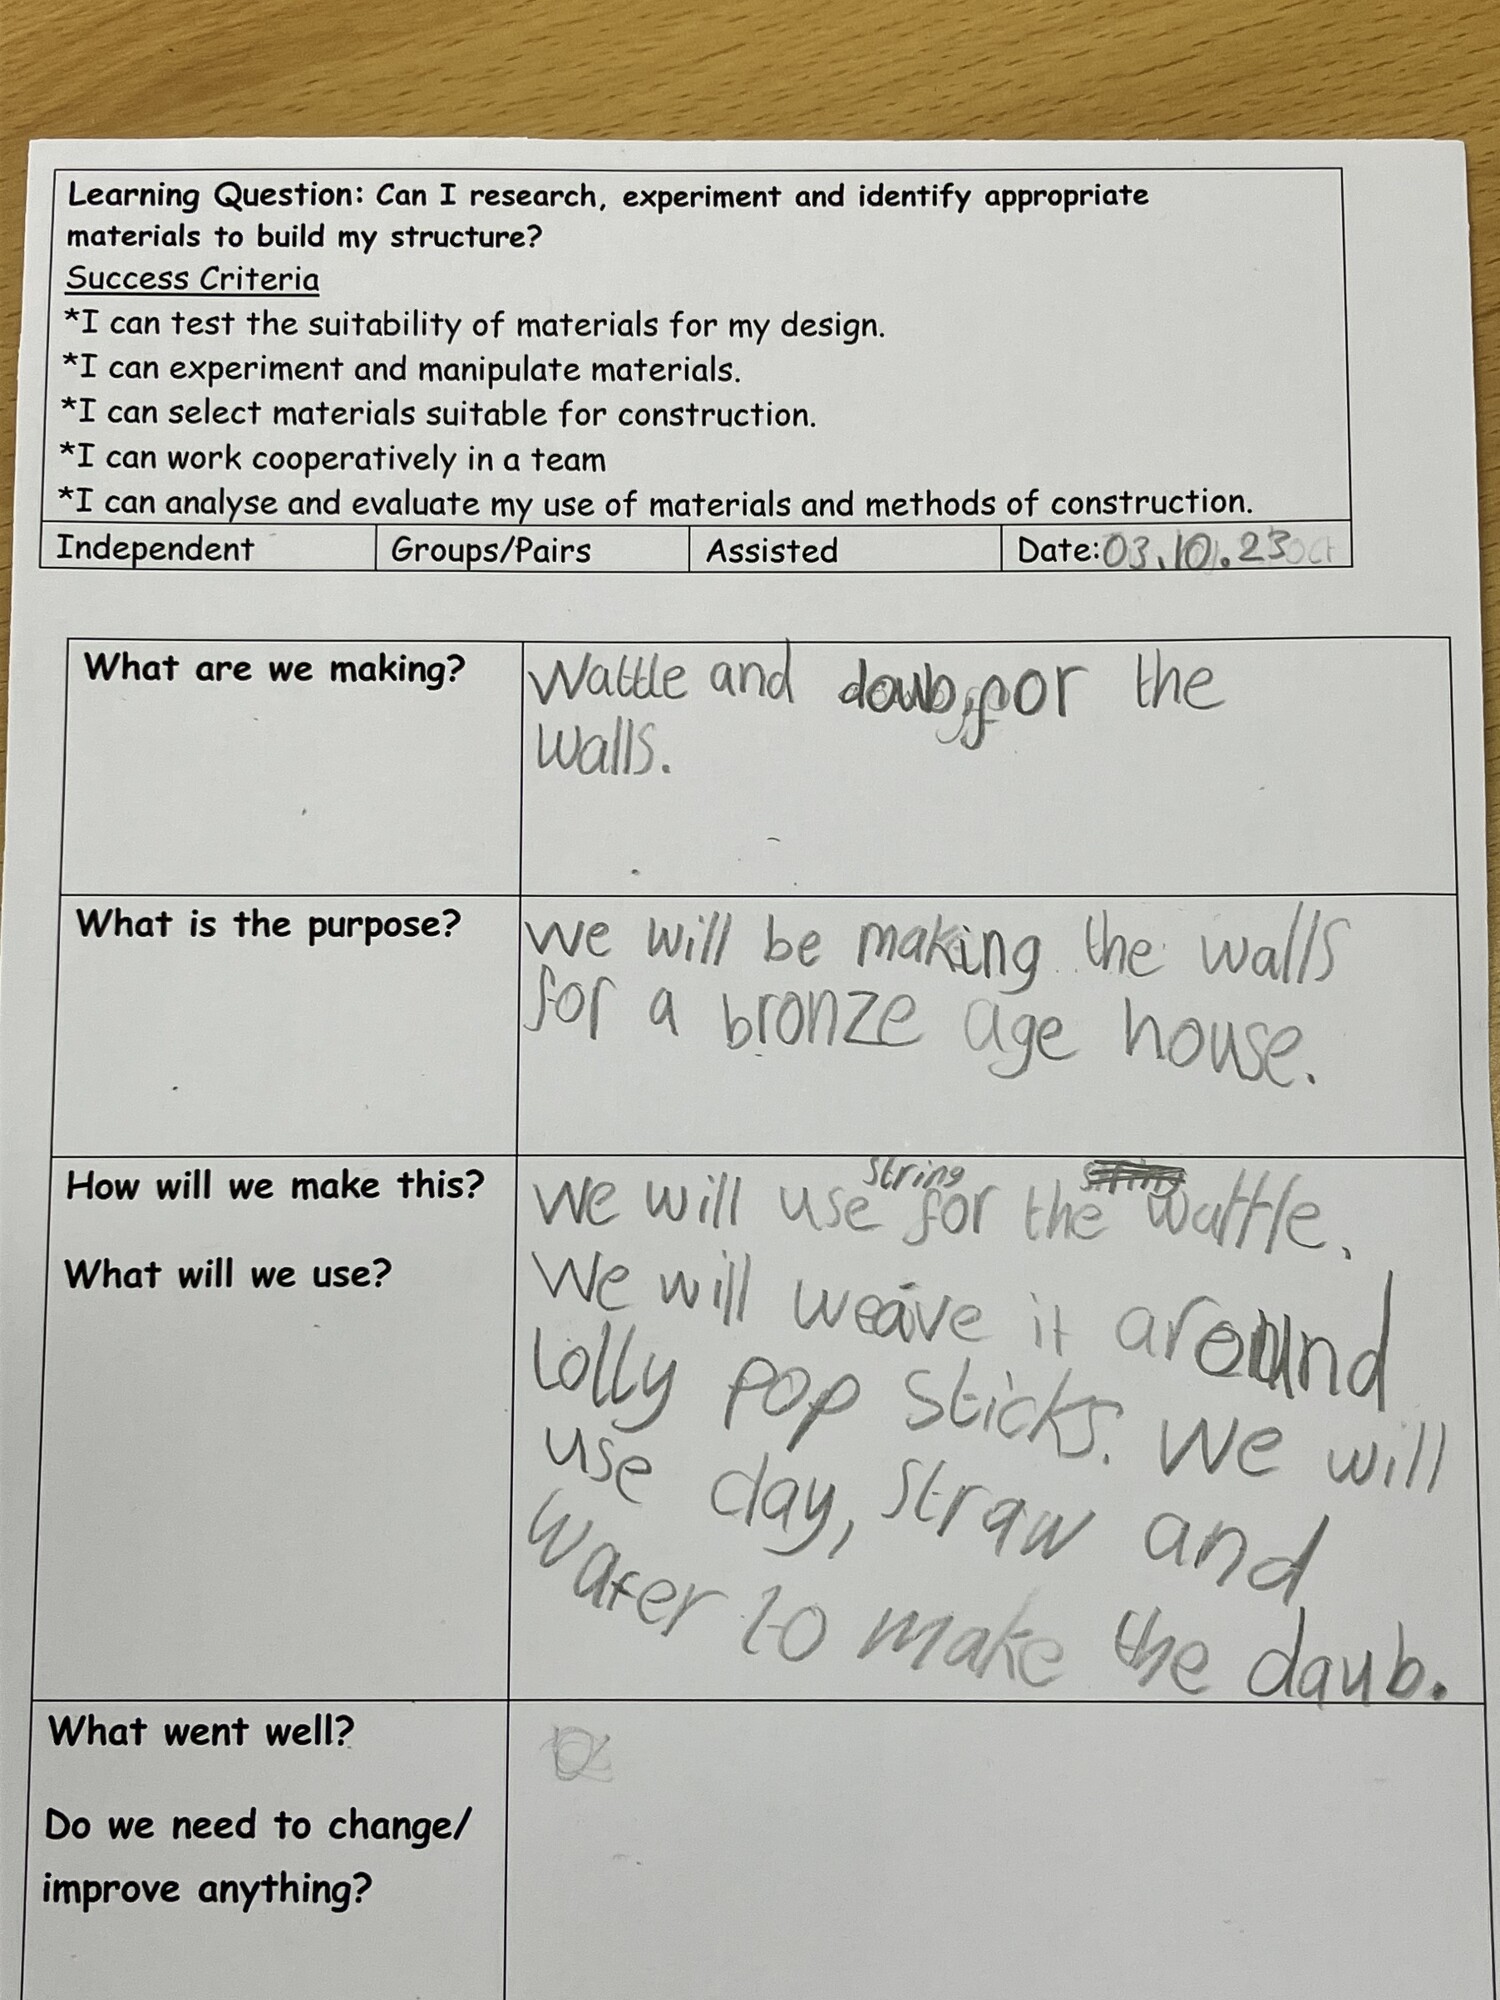 Learning Question: Can I research, experiment and identify appropriate
materials to build my structure?
Success Criteria
*I can test the suitability of materials for my design.
*I can experiment and manipulate materials.
*I can select materials suitable for construction.
*I can work cooperatively in a team
*I can analyse and evaluate my use of materials and methods of construction.
Independent
Groups/Pairs
Assisted
Date: 03.10.23
What are we making?
Wattle and daub, for the
walls.
What is the purpose?
We will be making the walls
for a bronze age house.
How will we make this?
What will we use?
We will use string for the wattle.
We will weave it around
lolly pop sticks. We will
use clay, straw and
water to make the daub.
What went well?
Do we need to change/
improve anything?